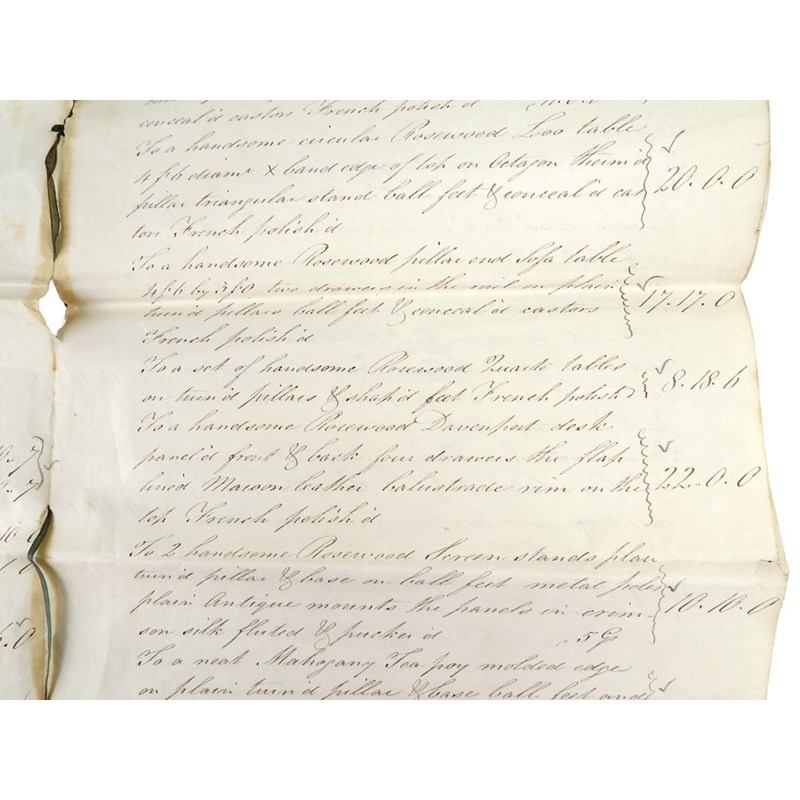 conceal'd castors French polish'd
To a handsome circular Rosewood Loo table
4 f 6 diamr x band edge of top on Octagon therm'd
pillar triangular stand ball feet & conceal'd cas 20.0.0
tors French polish'd
To a handsome Rosewood pillar end Sofa table
4 f 6 by 3 f 0 two drawers in the rail on plain
turn'd pillars ball feet & conceal'd castors 17.17.0
French polish'd
To a set of handsome Rosewood Quarto tables
on turn'd pillars & shap'd feet French polish'd 8.18.6
To a handsome Rosewood Davenport desk
panel'd front & back four drawers the flap
lined Maroon leather balustrade rim on the 22.0.0
top French polish'd
To 2 handsome Rosewood Screen stands plain
turn'd pillar & base on ball feet metal poles
plain Antique mounts the panels in crim 10.10.0
son silk fluted & pucker'd 5 G
To a neat Mahogany Teapoy molded edge
on plain turn'd pillar & base ball feet and